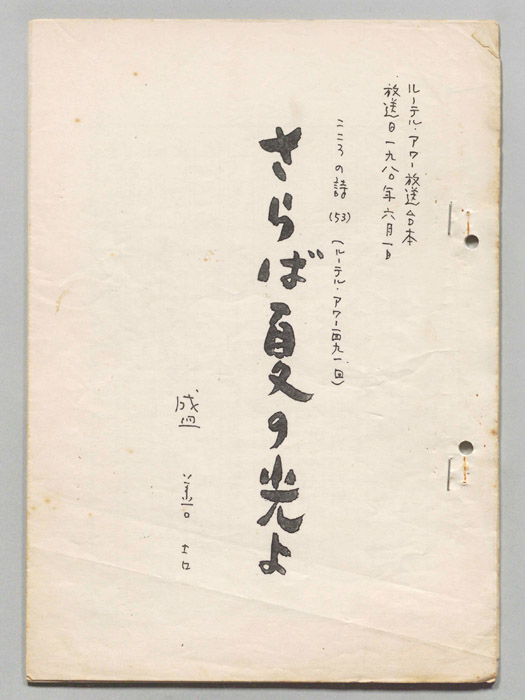 ルーテル・アワー放送台本
放送日 一九八〇年六月一日
こころの詩 (53) (ルーテル・アワー一四九一回)
さらば夏の光よ
盛 善吉